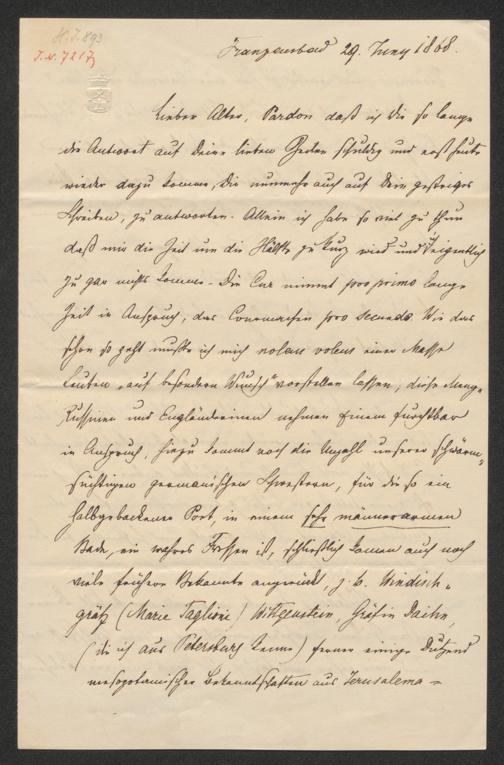 H.I. 893
I.N. 7217
Franzensbad 29. Juny 1868.
Lieber Alter, Pardon daß ich Dir so lange
die Antwort auf Deine lieben Zeilen schuldig und erst heute
wieder dazu komme, Dir nunmehr auch auf Dein gestriges
Schreiben, zu antworten. Allein ich habe so viel zu thun
daß mir die Zeit um die Hälfte zu kurz wird und ich eigentlich
zu gar nichts komme. Die Cur nimmt pro primo lange
Zeit in Anspruch, das Courmachen pro secundo. Wie das
schon so geht mußte ich mich nolens volens einer Masse
Leuten „auf besondern Wunsch" vorstellen lassen, diese Menge
Russinen und Engländerinen nehmen Einem furchtbar
in Anspruch, hiezu kommt noch die Unzahl unserer schwärm-
süchtigen germanischen Schwestern, für die so ein
halbgebackener Poet, in einem sehr männerarmen
Bade, ein wahres Fressen ist, schließlich kamen auch noch
viele frühere Bekannte angerückt, z. b. Windisch-
grätz (Marie Taglioni) Wittgenstein, Gräfin
(die ich aus Petersburg kenne) ferner einige Dutzend
mesopotamischer Bekanntschaften aus Jerusalema-